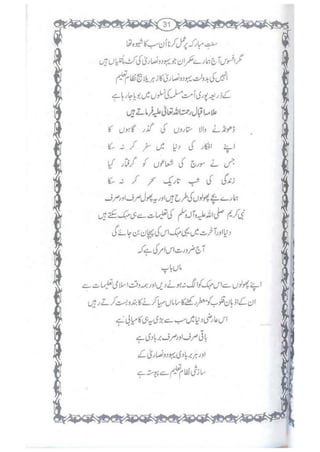 31
سنت مبارکہ پر عمل کرنا ان سب کا شیوہ تھا
مگر افسوس آج ہمارے حکمران جو یہود و نصاریٰ کی کٹ پتلیاں ہیں
انہیں کی بدولت یہود و نصاریٰ کا زہریلا نظام تعلیم
کے ذریعہ پوری امت مسلمہ کی نسلوں میں بویا جا رہا ہے
علامہ اقبال رحمۃ اللہ تعالیٰ علیہ فرماتے ہیں
ڈھونڈنے والا ستاروں کی گذر گاہوں کا
اپنے افکار کی دنیا میں سفر کر نہ سکا
جس نے سورج کی شعاعوں کو گرفتار کیا
زندگی کی شب تاریک سحر کر نہ سکا
ہمارے بچے پھولوں کی طرح ہیں اور یہ پھول صرف اور صرف
نبی کریم صلی اللہ علیہ وآلہ وسلم کی تعلیمات سے ہی مہک سکتے ہیں
دنیا اور آخرت میں یہی مہک اس کی پہچان بن جائے گی
آج ضرورت اس امر کی ہے کہ
ماں باپ
اپنے پھولوں سے اس مہک کو الگ نہ ہونے دیں اور ہمہ وقت اسلامی تعلیمات سے
ان کے اذہان و قلوب کو معطر رکھنے کا سامان مہیا کرنے کا بندوبست کرتے رہیں
اس عارضی دنیا میں سب سے بڑی یہی کامیابی ہے
باقی صرف اور صرف بربادی ہے
اور ہر بربادی یہود و نصاریٰ کے
سازشی نظام تعلیم سے پیوستہ ہے